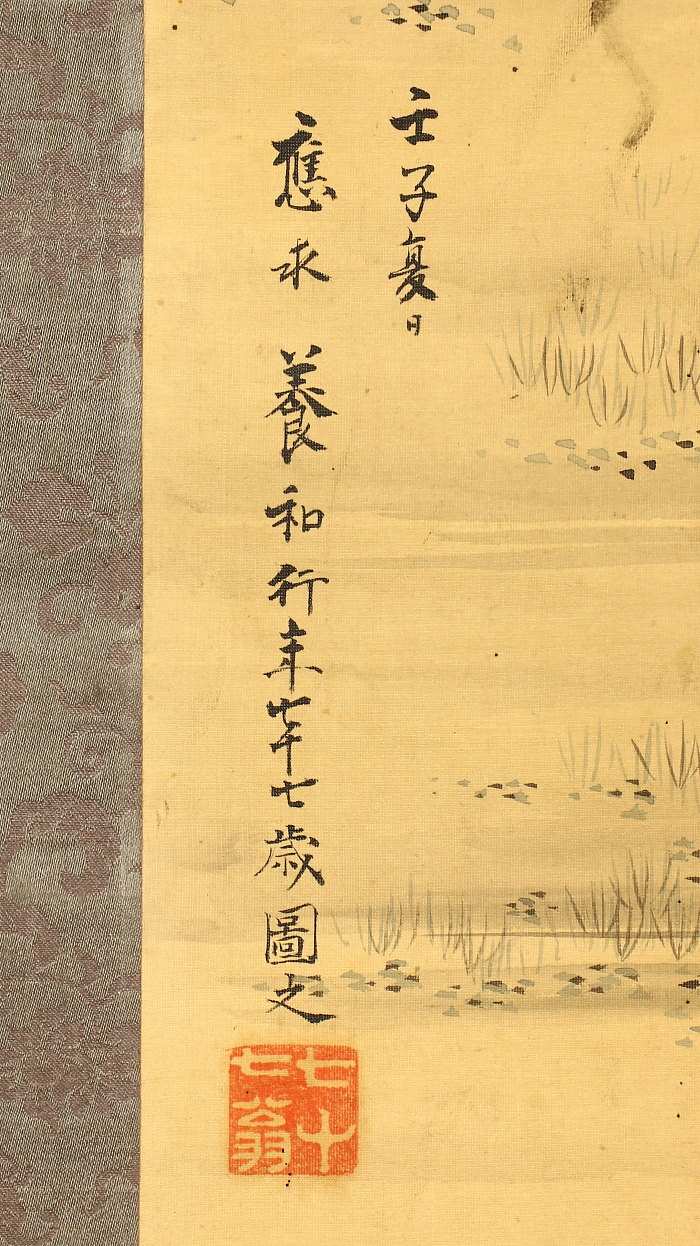 壬子夏日
應求 養和行年七十七歳圖之
七十七翁